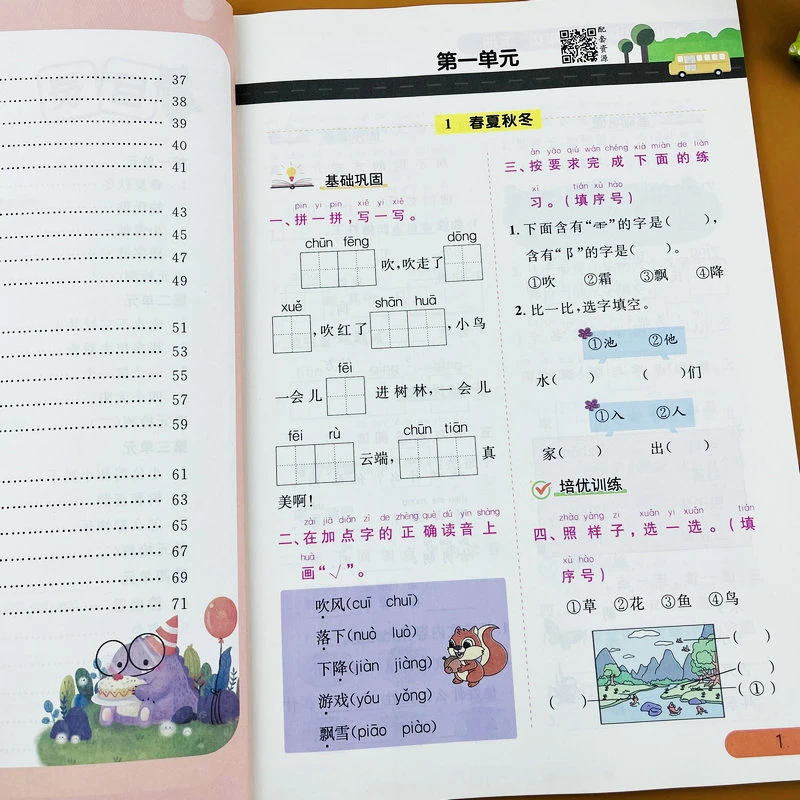 37
38
39
40
41
43
45
47
49
51
53
55
57
59
61
63
65
67
69
71
第一单元
配套资源
1 春夏秋冬
基础巩固
pīn yi pīn xiě yi xiě
一、拼一拼，写一写。
chūn fēng dōng
吹，吹走了
xuě shān huā
，吹红了 ，小鸟
fēi
一会儿 进树林，一会儿
fēi rù chūn tiān
云端， 真
美啊！
zài jiā diǎn zì de zhèng què dú yīn shàng
二、在加点字的正确读音上
huà
画“√”。
吹风(cuī chuī)
落下(nuò luò)
下降(jiàn jiàng)
游戏(yóu yǒng)
飘雪(piāo piào)
àn yāo qiú wán chéng xià miàn de liàn
三、按要求完成下面的练
xí tián xù hào
习。(填序号)
1. 下面含有“⻗”的字是( )，
含有“阝”的字是( )。
①吹 ②霜 ③飘 ④降
2. 比一比，选字填空。
①池 ②他
水( ) ( )们
①入 ②人
家( ) 出( )
培优训练
zhào yàng zi xuǎn yi xuǎn tián
四、照样子，选一选。(填
xù hào
序号)
①草 ②花 ③鱼 ④鸟
( )
( )
( ) (①)
1